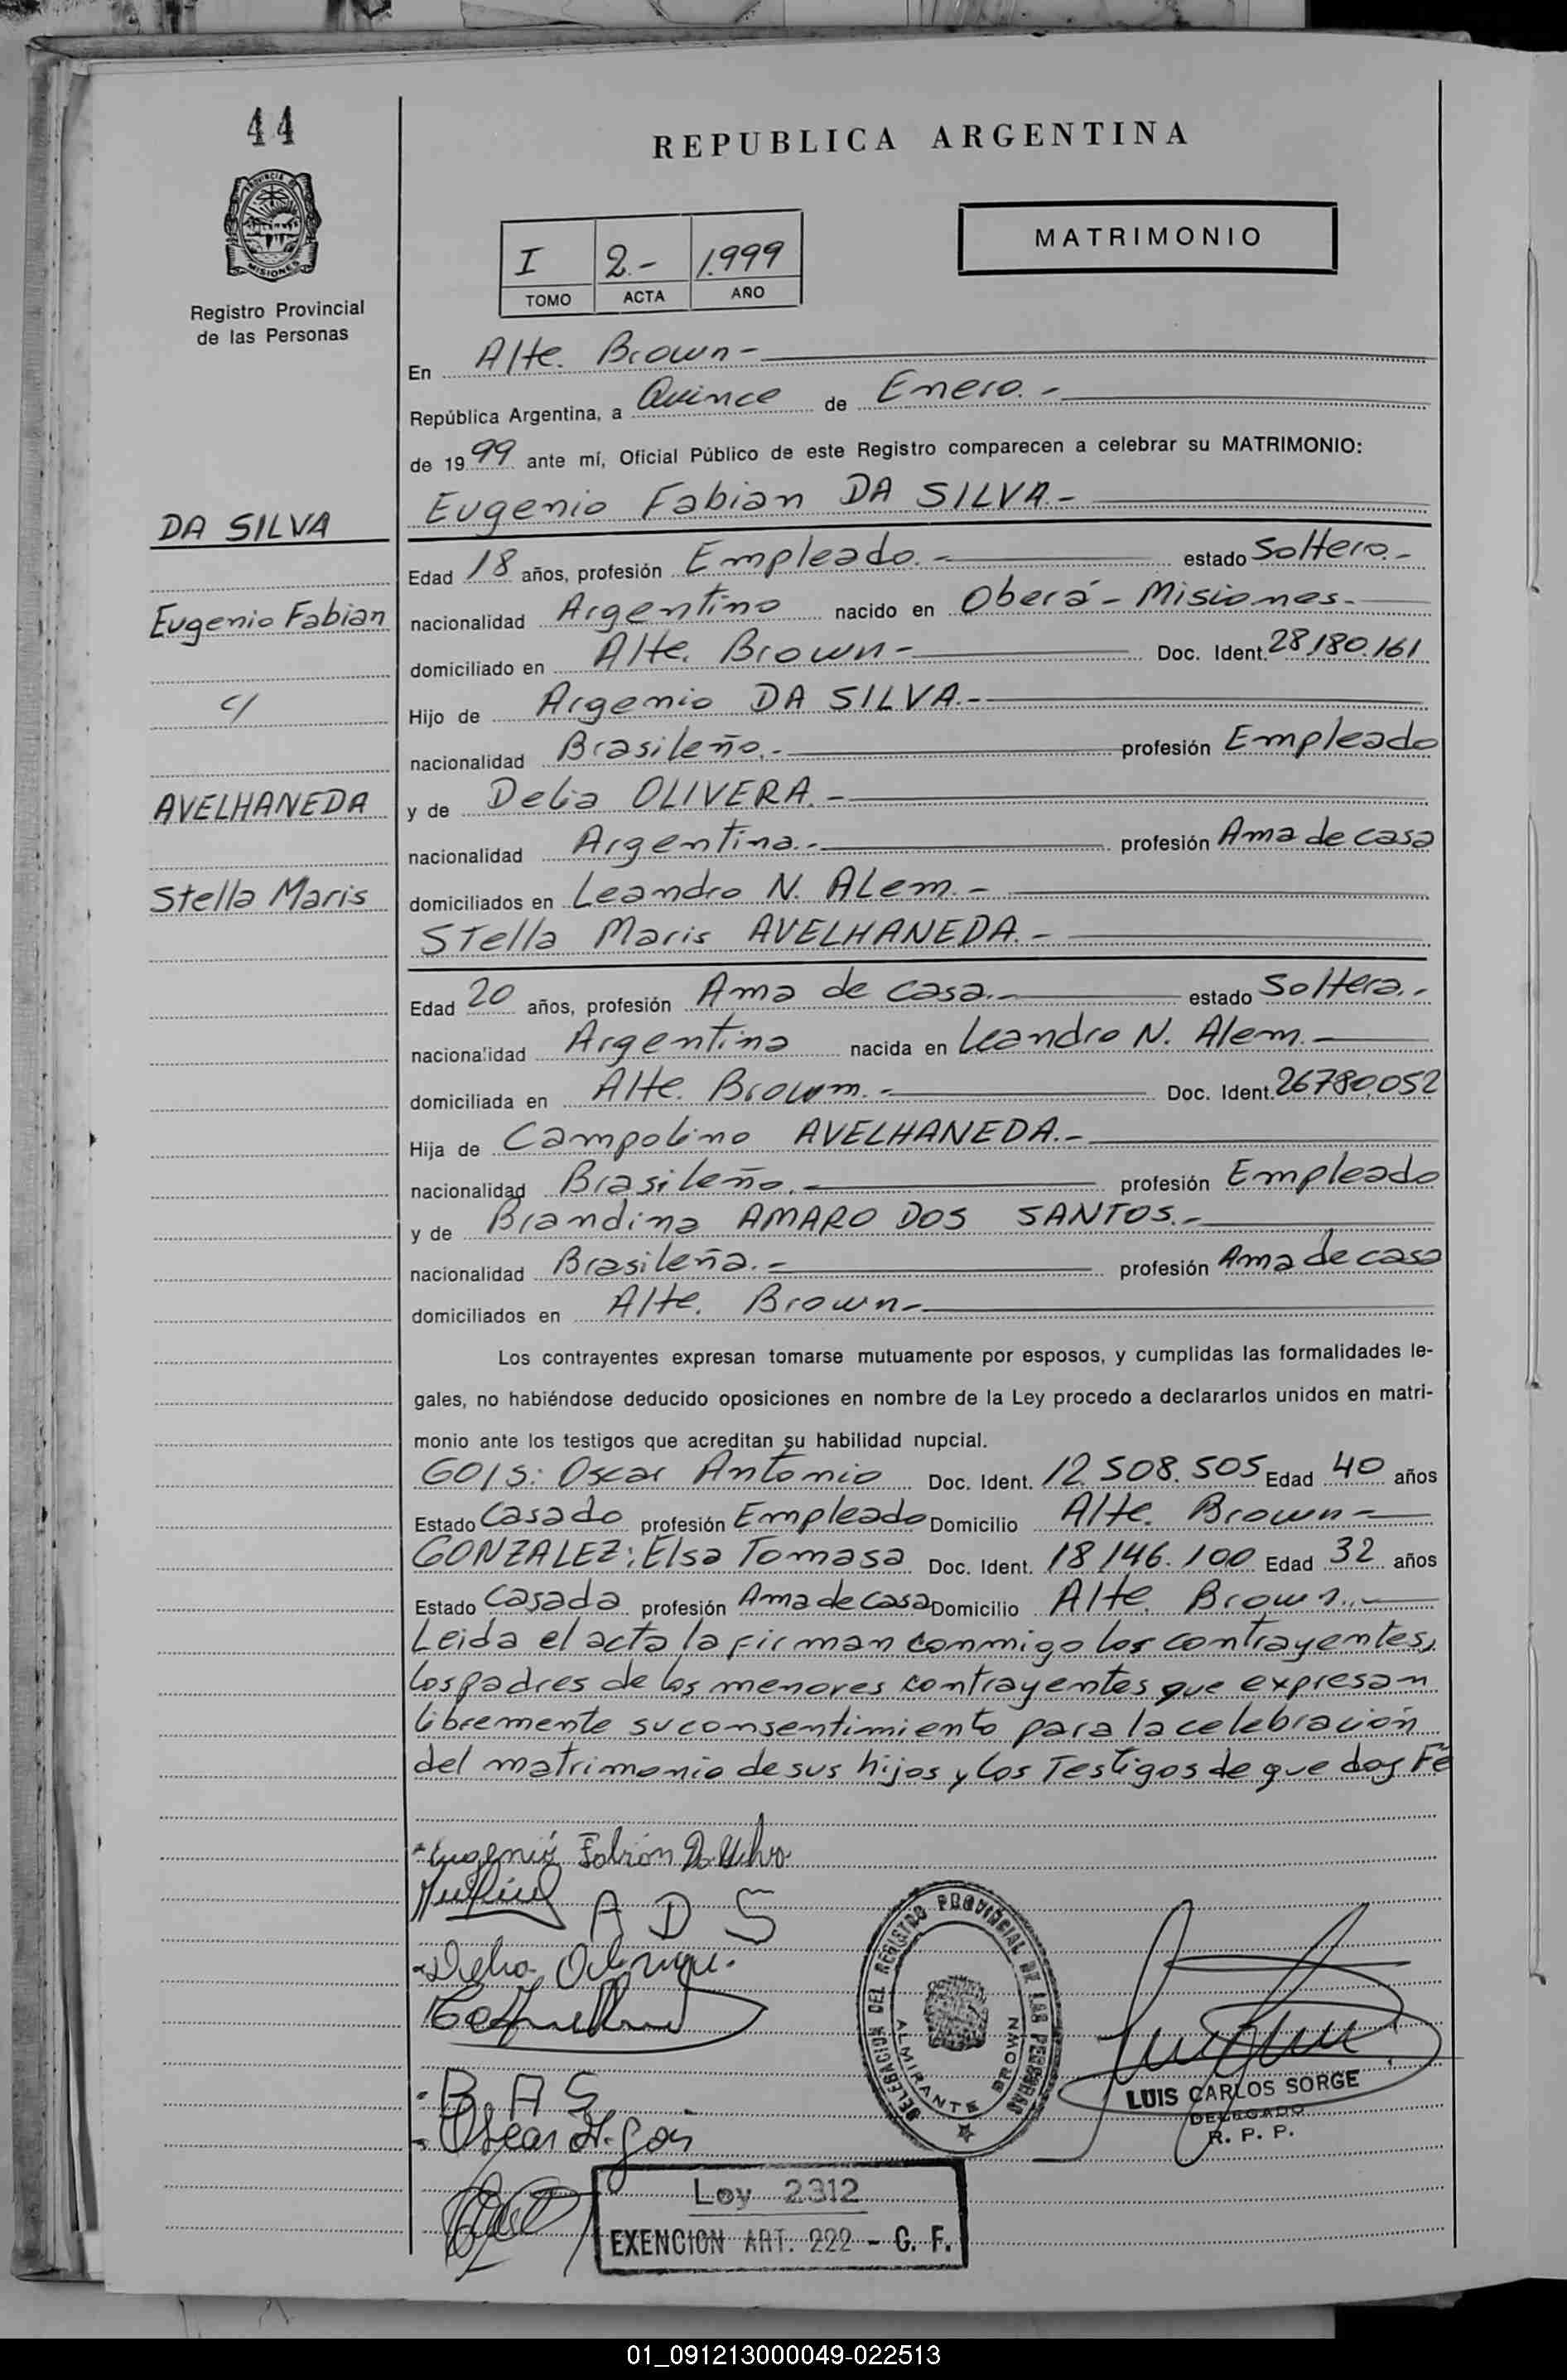 44
REPUBLICA ARGENTINA
PROVINCIA DE
MISIONES
MATRIMONIO
I 2.- 1.999
TOMO ACTA AÑO
Registro Provincial
de las Personas
En Alte. Brown-
República Argentina, a Quince de Enero.-
de 1999 ante mí, Oficial Público de este Registro comparecen a celebrar su MATRIMONIO:
Eugenio Fabian DA SILVA.-
DA SILVA
Edad 18 años, profesión Empleado.- estado Soltero.-
Eugenio Fabian
nacionalidad Argentino nacido en Oberá - Misiones.-
domiciliado en Alte. Brown- Doc. Ident. 28.180.161
c/
Hijo de Argenio DA SILVA.-
nacionalidad Brasileño.- profesión Empleado
AVELHANEDA
y de Delia OLIVERA.-
nacionalidad Argentina.- profesión Ama de casa
Stella Maris
domiciliados en Leandro N. ALem.-
Stella Maris AVELHANEDA.-
Edad 20 años, profesión Ama de casa.- estado Soltera.-
nacionalidad Argentina nacida en Leandro N. Alem.-
domiciliada en Alte. Brown.- Doc. Ident. 26780.052
Hija de Campolino AVELHANEDA.-
nacionalidad Brasileño.- profesión Empleado
y de Brandina AMARO DOS SANTOS.-
nacionalidad Brasileña.- profesión Ama de casa
domiciliados en Alte. Brown-
Los contrayentes expresan tomarse mutuamente por esposos, y cumplidas las formalidades le-
gales, no habiéndose deducido oposiciones en nombre de la Ley procedo a declararlos unidos en matri-
monio ante los testigos que acreditan su habilidad nupcial.
GOIS: Oscar Antonio Doc. Ident. 12.508.505 Edad 40 años
Estado Casado profesión Empleado Domicilio Alte. Brown-
GONZALEZ: Elsa Tomasa Doc. Ident. 18.146.100 Edad 32 años
Estado Casada profesión Ama de casa Domicilio Alte. Brown.-
Leida el acta la firman conmigo los contrayentes,
los padres de los menores contrayentes que expresan
libremente su consentimiento para la celebración
del matrimonio de sus hijos y los Testigos de que doy Fé
Eugenio Fabián Da Silva
A D S
Delia
B A S
Oscar A. Gois
DELEGACION DEL REGISTRO PROVINCIAL DE LAS PERSONAS
ALMIRANTE BROWN
LUIS CARLOS SORGE
DELEGADO
R. P. P.
Ley 2312
EXENCION ART. 222 - C. F.
01_091213000049-022513